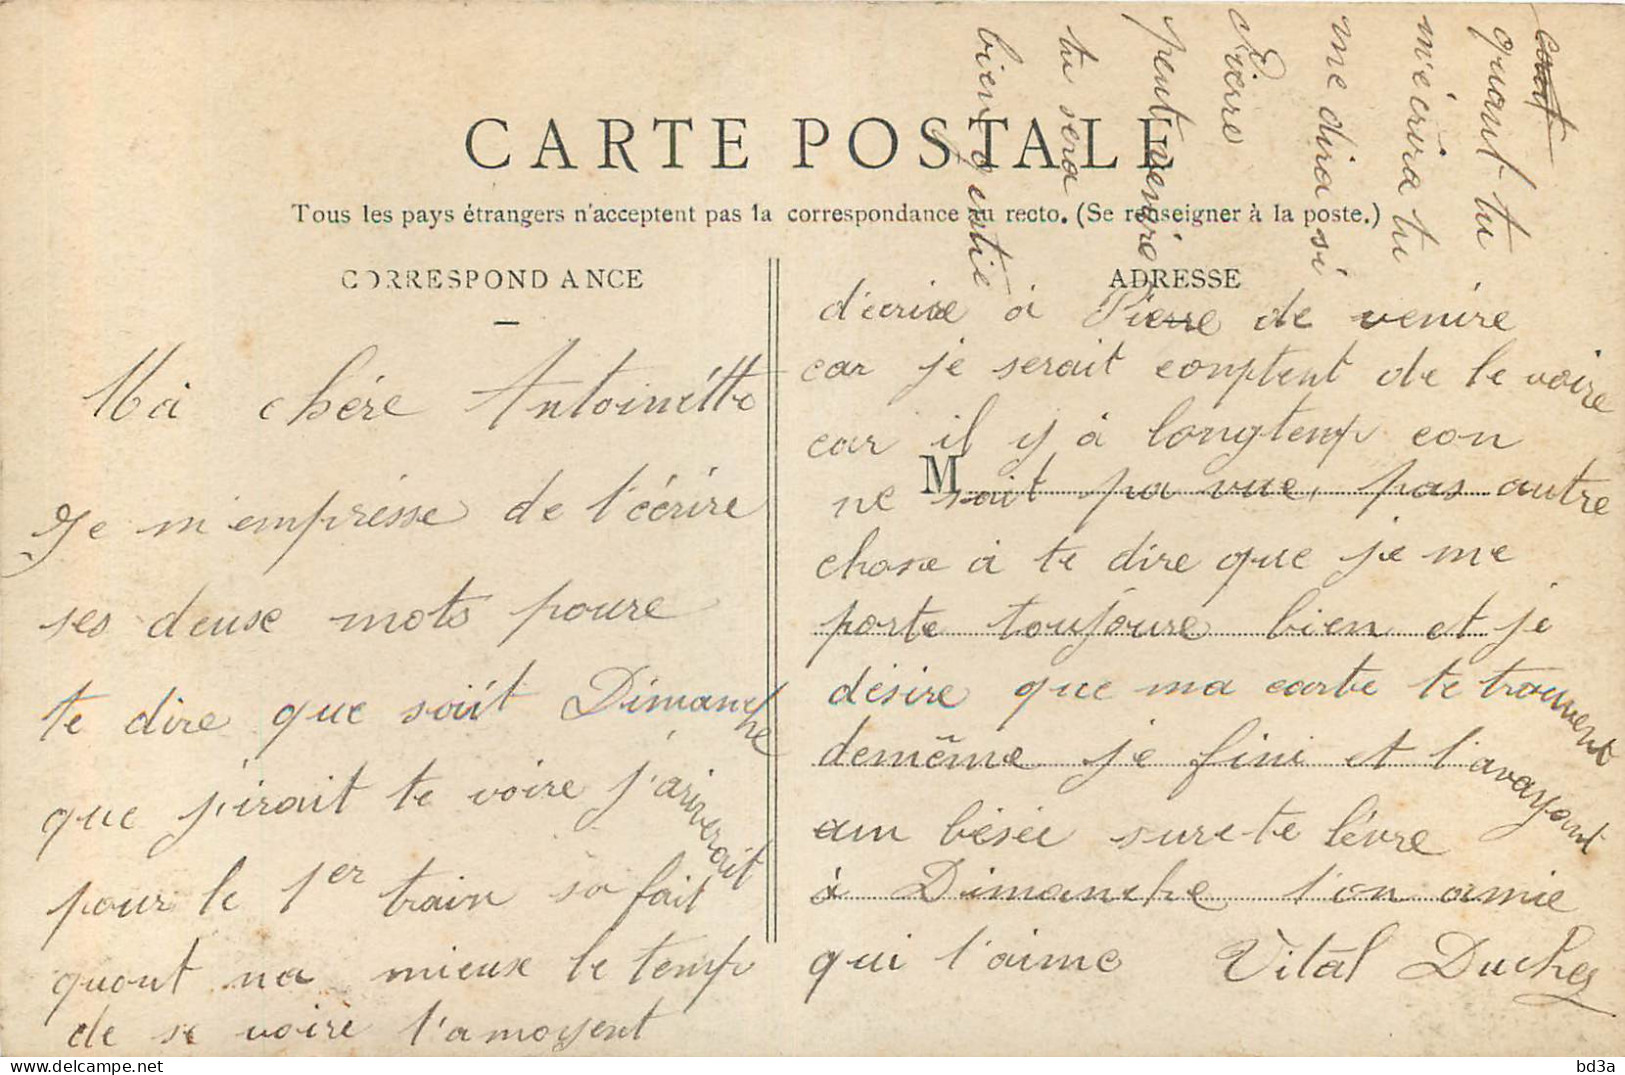 CARTE POSTALE
Tous les pays étrangers n'acceptent pas la correspondance au recto. (Se renseigner à la poste.)
CORRESPONDANCE
ADRESSE
M
Ma chére Antoinétte
Je m'emprésse de t'écrire
ses deuse mots poure
te dire que soit Dimanche
que j'irait te voire j'ariverait
pour le 1er train sa fait
quont na mieux le temp
de se voire t'amoyent
d'ecrire à Pierre de venire
car je serait comptent de le voire
car il y à longtemp con
ne soit pa vue, pas autre
chose à te dire que je me
porte toujoure bien et je
désire que ma carte te trouvent
demême je fini et t'avayent
am béséé sure te lévre
à Dimanche ton amie
qui t'aime Vital Duchez
quant tu
m'écrira tu
me dira si
Pierre
peut venire
tu sera
bien gentie
bd3a